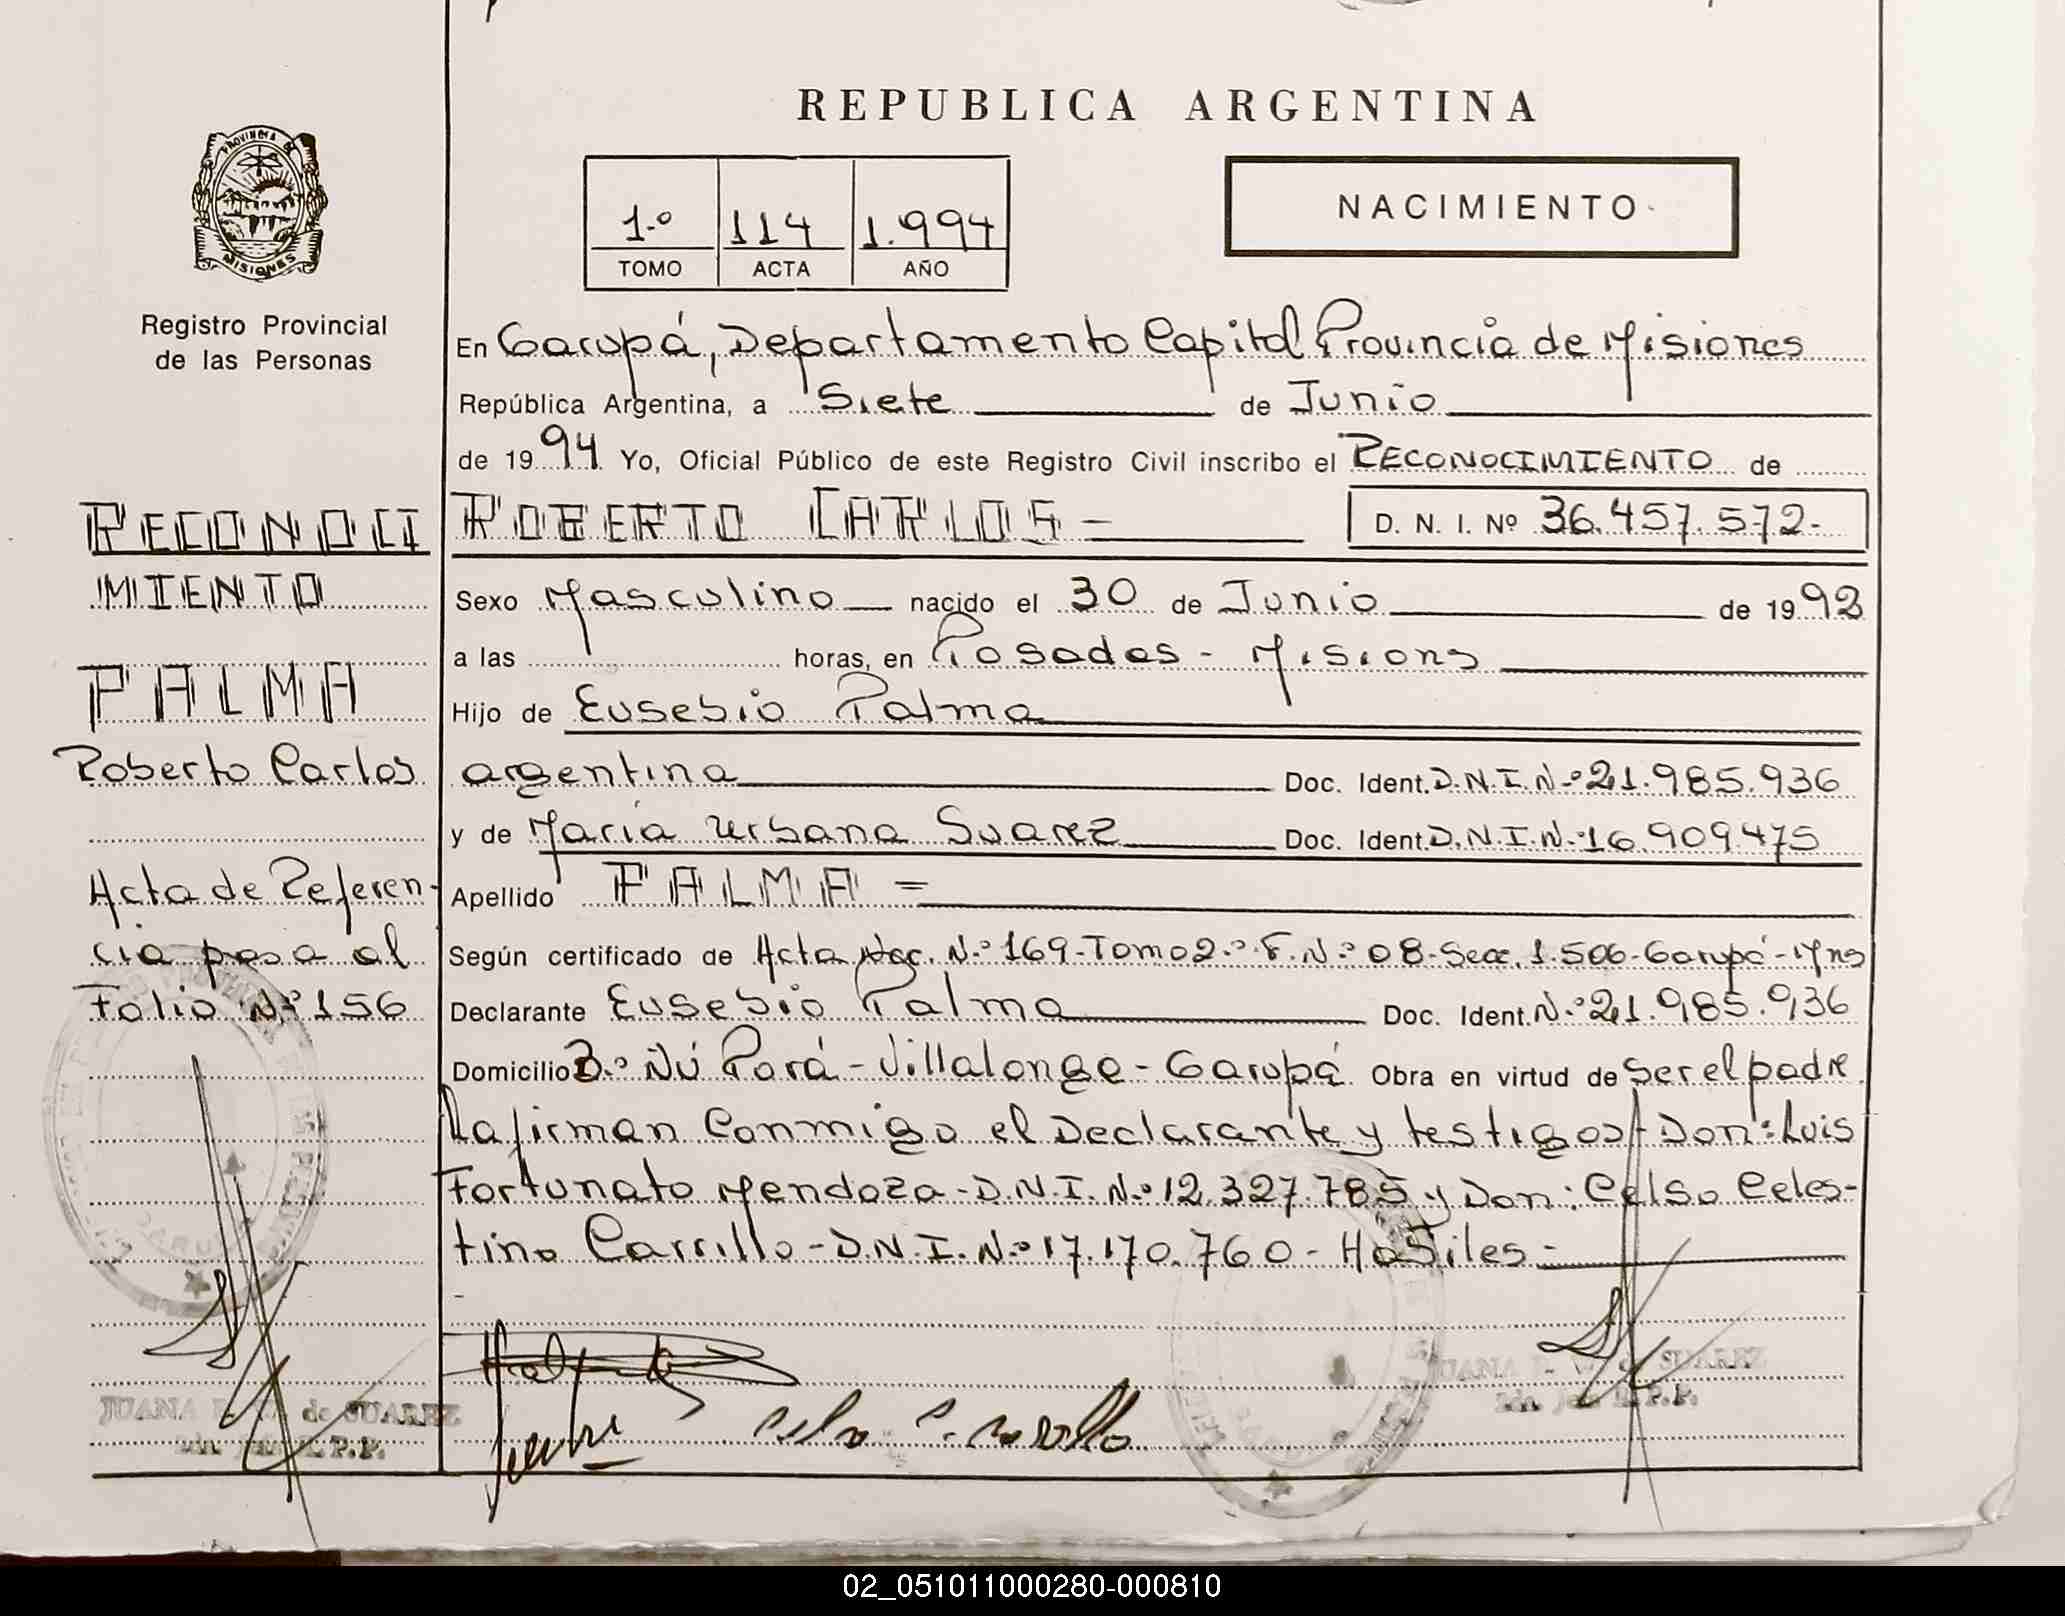 REPUBLICA ARGENTINA
PROVINCIA DE
MISIONES
1.º 114 1.994
TOMO ACTA AÑO
NACIMIENTO
Registro Provincial
de las Personas
En Garupá, Departamento Capital Provincia de Misiones
República Argentina, a Siete de Junio
de 1994 Yo, Oficial Público de este Registro Civil inscribo el RECONOCIMIENTO de
ROBERTO CARLOS - D. N. I. Nº 36.457.572-
Sexo Masculino nacido el 30 de Junio de 1992
a las horas, en Posadas - Misions
Hijo de Eusebio Palma
argentina Doc. Ident. D.N.I.N.º 21.985.936
y de María Urbana Suarez Doc. Ident. D.N.I.N.º 16.909.475
Apellido PALMA =
Según certificado de Acta Nac. N.º 169-Tomo 2.º F.N.º 08-Secc. 1.506-Garupá-Mns
Declarante Eusebio Palma Doc. Ident. N.º 21.985.936
Domicilio B.º Ñú Porá - Villalonga - Garupá Obra en virtud de Ser el padre
La firman Conmigo el Declarante y testigos Don: Luis
Fortunato Mendoza - D.N.I. N.º 12.327.785 y Don: Celso Celes-
tino Carrillo - D.N.I. N.º 17.170.760 - Habiles -
RECONOCI
MIENTO
PALMA
Roberto Carlos
Acta de Referen-
cia pasa al
Folio Nº 156
JUANA de SUAREZ
R.P.P.
Celso C. Carrillo
JUANA de SUAREZ
R.P.P.
02_051011000280-000810